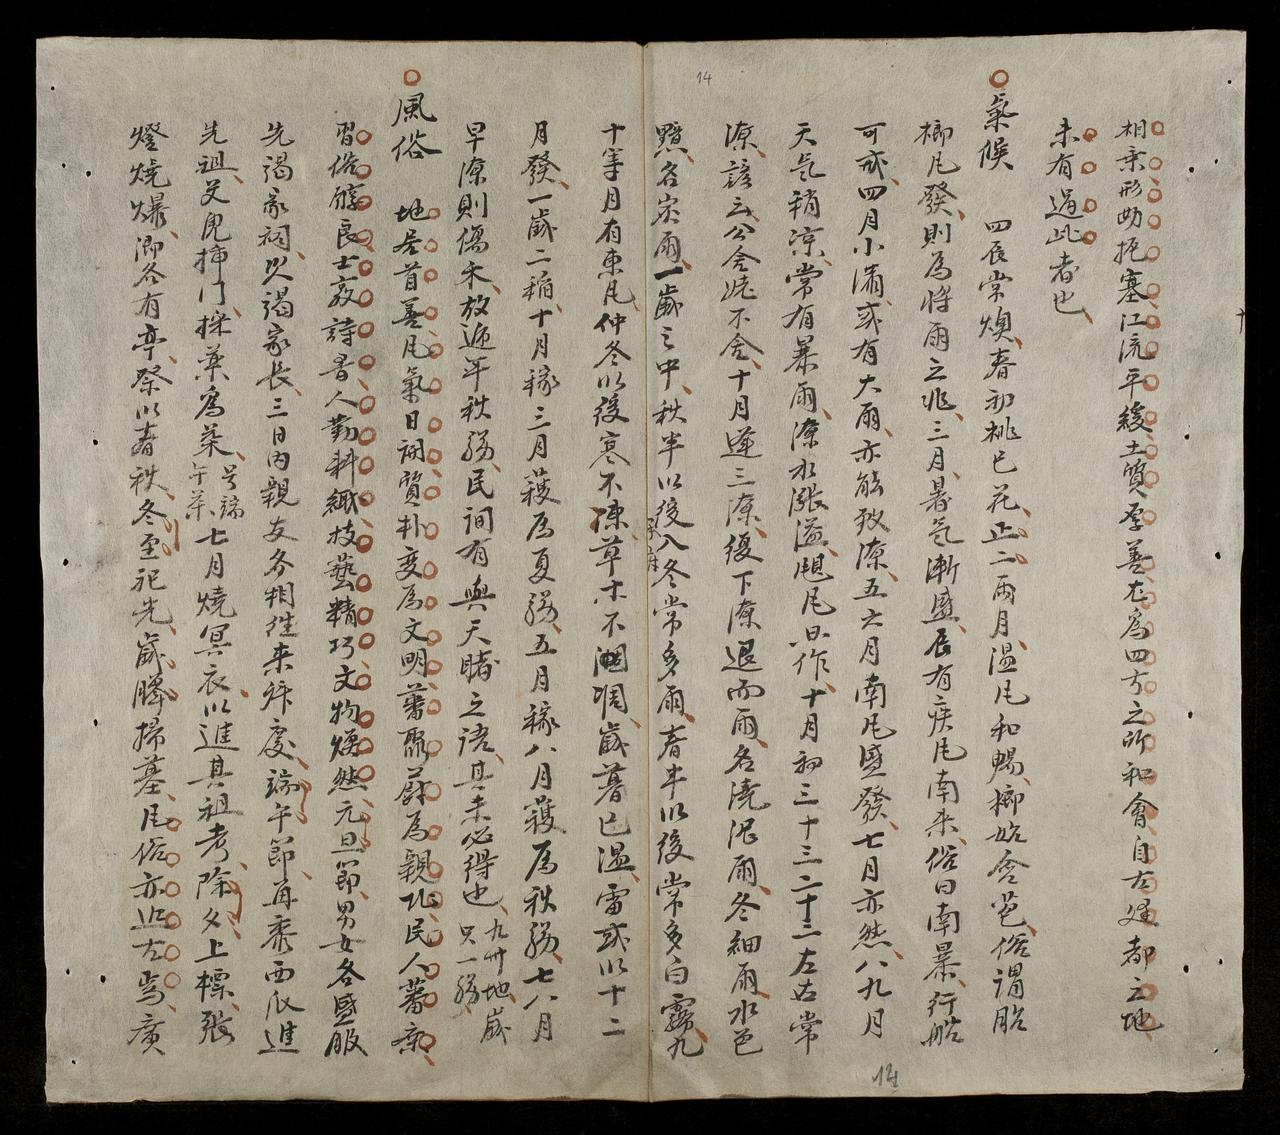 14
相乘形𫝑扼塞江流平緩土質厚善尤爲四方之所和會自古建都之地
未有過此者也
氣候 四辰常燠春初桃已花正二兩月温凡和暢榔始含苞俗謂胎
榔凡發則為將雨之兆三月暑气漸盛辰有疾凡南来俗曰南暴行船
可戒四月小滿或有大雨亦能致潦五六月南凡盛發七月亦然八九月
天气稍凉常有暴雨潦水漲溢颶凡旦作十月初三十三二十三左右常
潦諺云公舍姥不舍十月連三潦復下潦退而雨名澆泥雨冬細雨水色
黯名宗雨一歲之中秋半以後入冬常多雨春半以後常多白霧九
十等月有東凡仲冬以後寒不凍草木不凋歲暮已温雷或以十二
月發一歲二稲十月稼三月蘐爲夏務五月稼八月蘐爲秋務七八月
旱潦則傷禾故逓年秋務民间有與天賭之語其未必得也 九卅地歲
只一務
風俗 地居首善凡氣日開質朴变為文明蕃聚蔚為親北民人蕃衆
習俗醇良士敦詩書人勤耕織技藝精巧文物煥然元旦節男女各盛服
先謁家祠次謁家長三日内親友各相徃来拜慶端午節再黍西瓜進
先祖艾虎挿门採葉爲葯 号端
午葯 七月燒冥衣以進其祖考除夕上標張
燈燒爆鄉各有亭祭以春秋冬至祀先歲臘掃墓凡俗亦近古焉廣
14